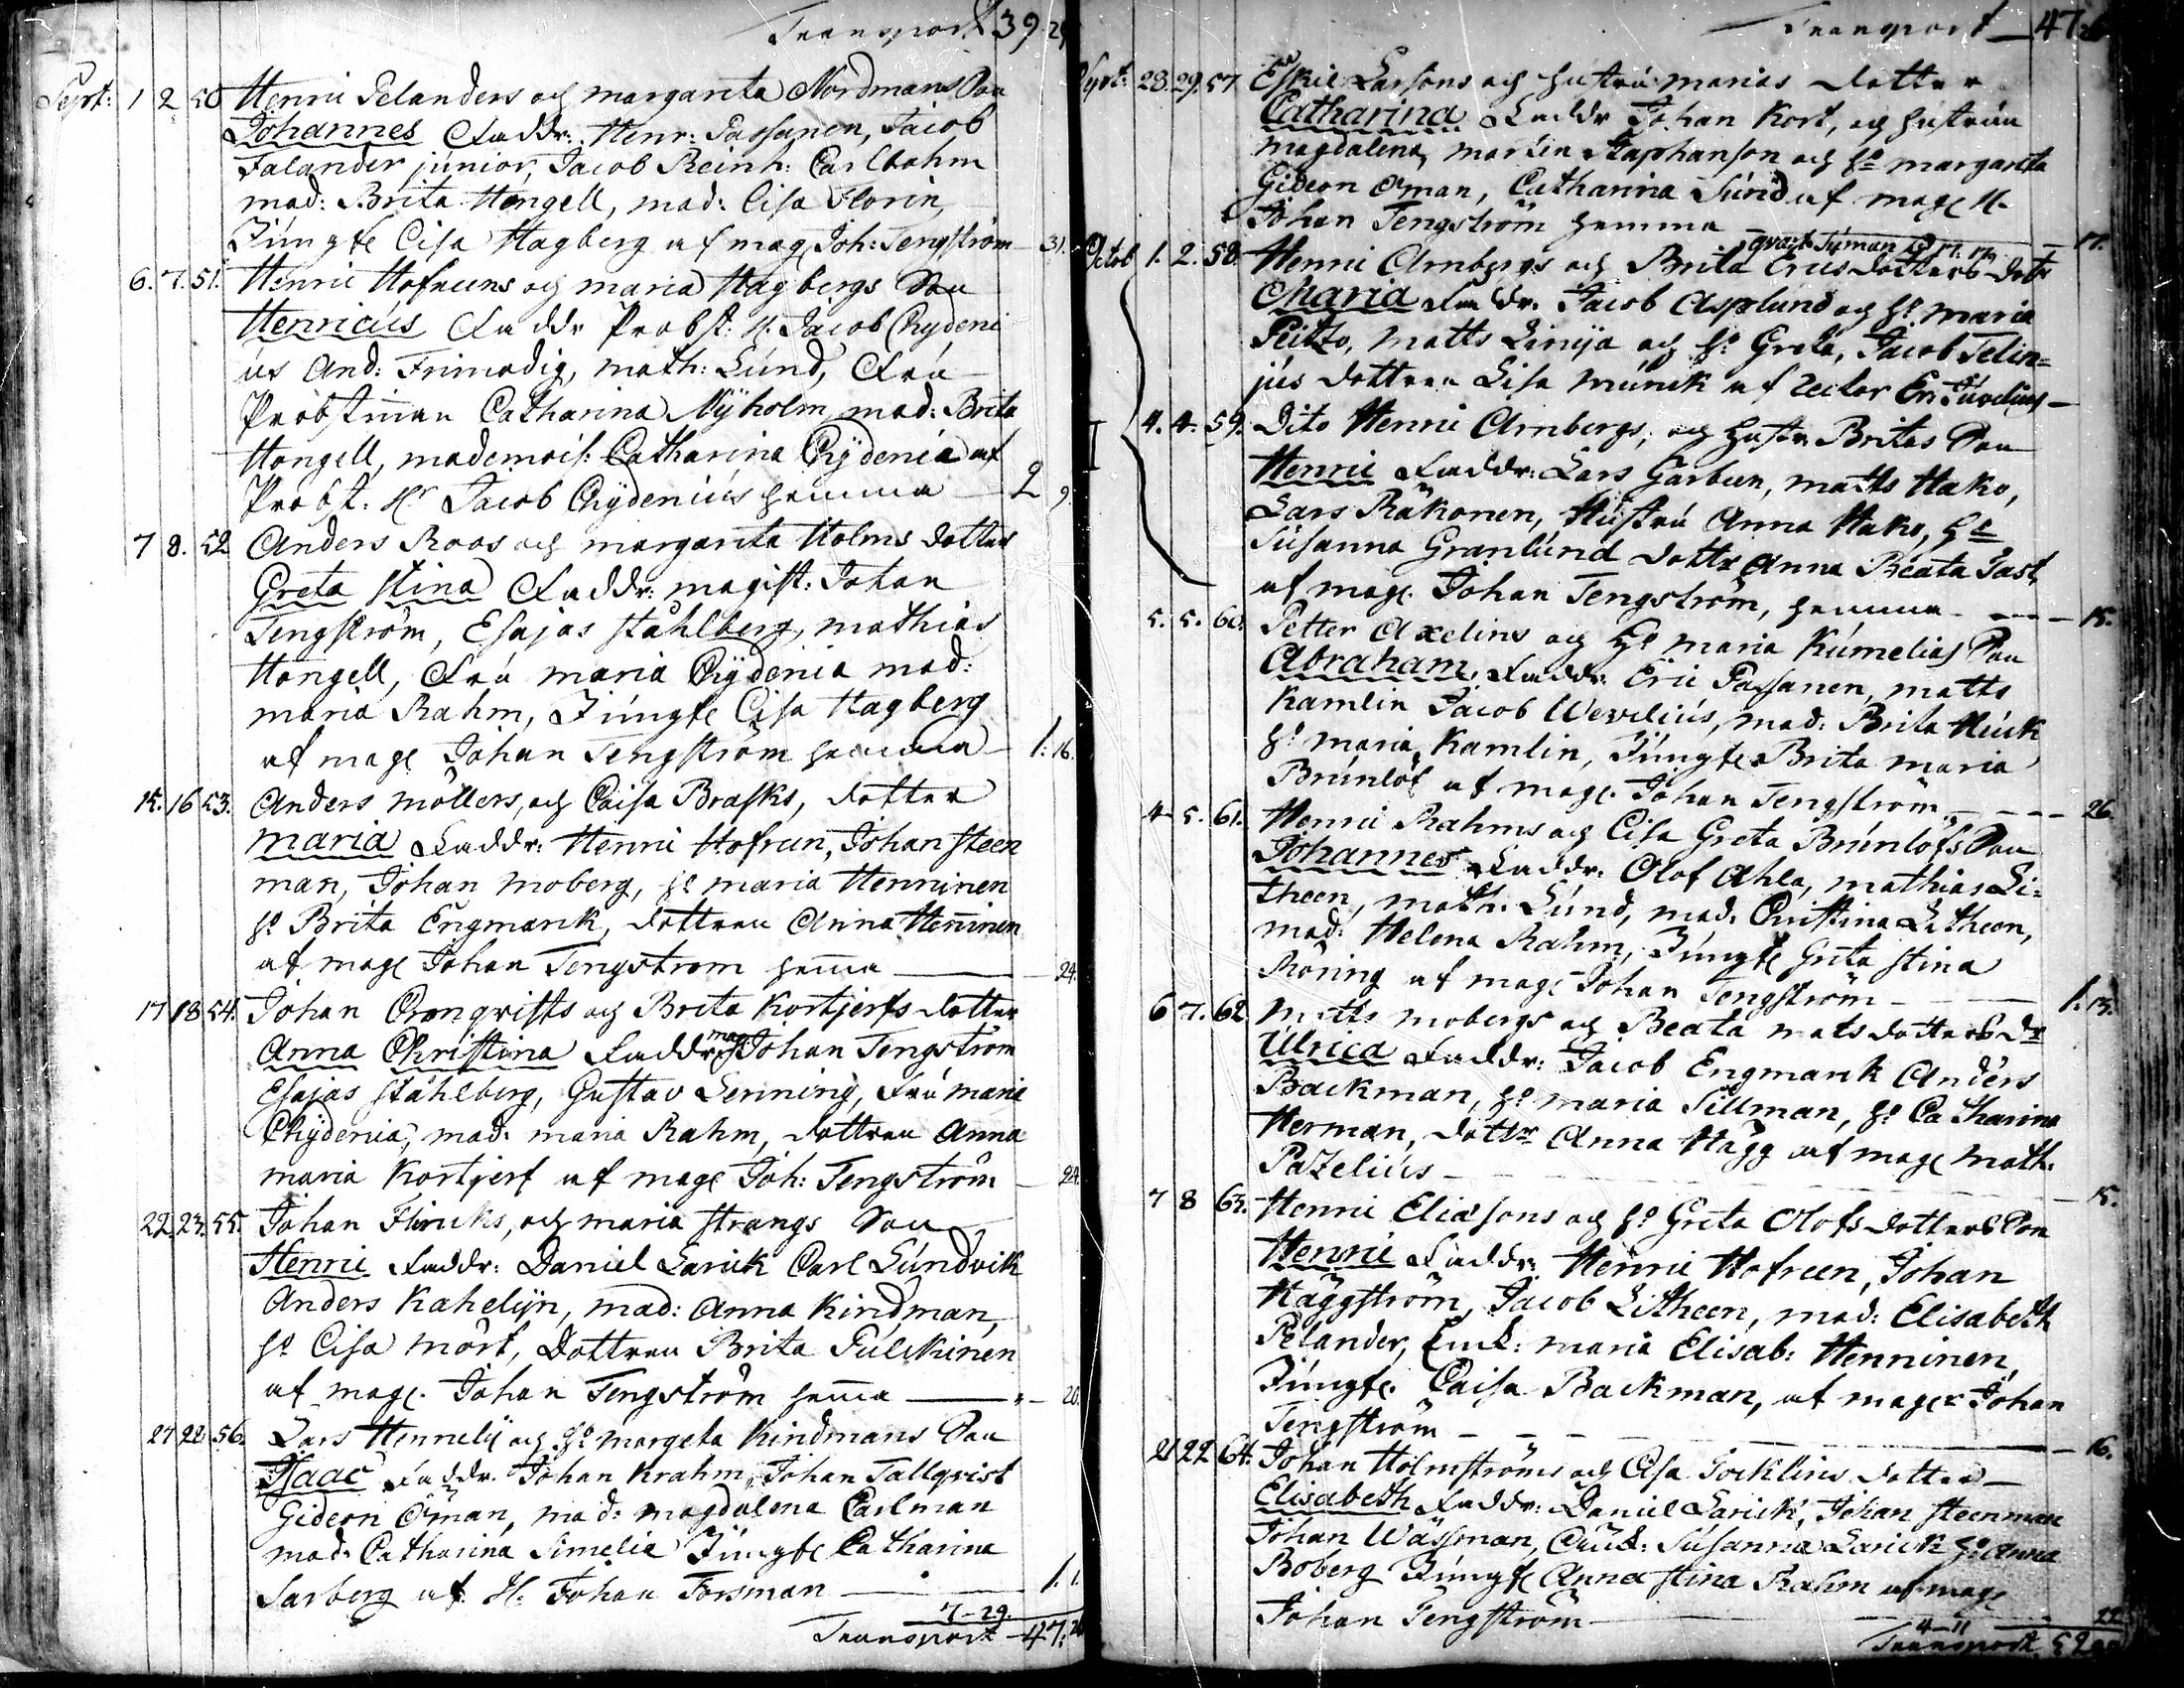 Transport 39.29
Sept: 1 2 50 Henric Pelanders och margareta Nordmans Son
Johannes Faddr: Henr: Passanen, Jacob
Falander junior, Jacob Reinh: Carlbohm
mad: Brita Hongell, mad: Lisa Florin,
Jungfr Lisa Hagberg af mag Joh: Tengström — 31.
6. 7. 51. Henric Hofreens och maria Hagbergs Son
Henricus Faddr Probst: H. Jacob Chydeni
us And: Frimodig, math: Lund, Fru
Probstinnan Catharina Nyholm mad: Brita
Hongell, mademois: Catharina Chydenia af
Probst: Hr Jacob Chydenius hemma — 2 9
7 8. 52 Anders Roos och margareta Holms dotter
Greta Stina Faddr: magist: Johan
Tengström, Esajas Ståhlberg, mathias
Hongell, Fru maria Chydenia mad:
maria Rahm, Jungfr Lisa Hagberg
af mag Johan Tengström hemma — 1:16.
15. 16 53. Anders möllers, och Caisa Brasks, dotter
maria Faddr: Henric Hofreen, Johan Steen
man, Johan moberg, ho maria Henninen
ho Brita Engmarck, dottren Anna Heninen
af mag Johan Tengstrom hema — 24.
17 18 54. Johan Cronqvists och Brita Kortjerfs dotter
Anna Christina Faddr: mag: Johan Tengstrom
Esajas Ståhlberg, Gustav Lenning, Fru maria
Chydenia, mad: maria Rahm, dottren Anna
maria Kortjerf af mag Joh: Tengström — 24.
22. 23. 55. Johan Flincks, och maria Strangs Son
Henric Faddr: Daniel Larick Carl Lundvik
Anders Kahelijn, mad: Anna Kindman,
ho Lisa Mört, Dottren Brita Fulckinen
af mag. Johan Tengström hema — 20.
27 22. 56. Lars Hennelij och ho margeta Kindmans Son
Isaac Faddr: Johan Krahm, Johan Tallqvist
Gideon Öman, mad: magdalena Carlman
mad: Catharina Simelia Jungfr Catharina
Sarberg af H: Johan Forsman — 1. 1.
7–29.
Transport — 47:26
Transport — 47:26
Sept: 28. 29. 57 Eskil Larsons och hustru marias dotter
Catharina Faddr Johan Kort, och hustrun
magdalena, martin Staphanson och ho margareta
Gideon Öman, Catharina Lund af mag H.
Johan Tengström hemma — 17.
Octob 1. 2. 58. Henric Arnbergs och Brita Ericsdotters dotr
Maria Faddr: Jacob Asplund och ho maria
Peitzo, matts Linija och ho Greta, Jacob Telin=
jus dottren Lisa munck af rector Er: Juvelius —
4. 4. 59. Dito Henric Arnbergs, och hustr Britas Son
Henric Faddr: Lars Garbeen, matts Hako,
Lars Räkonen, Hustru Anna Hako, ho
Susanna Granlund dottr Anna Beata Jast
af mag. Johan Tengström, hemma — 15.
5. 5. 60. Petter Axelins och ho maria Kumelias Son
Abraham, Faddr: Eric Passanen, matts
Kamlin Jacob Wewelius, mad: Brita Huck
ho maria Kamlin, Jungfr Brita maria
Brunlöf af mag. Johan Tengström — 26.
4 5. 61. Henric Rahms och Lisa Greta Brunlöfs Son
Johannes Faddr: Olof Ahla, mathias Li=
theen, math: Lund, mad: Christina Litheen,
mad: Helena Rahm, Jungfr Greta Stina
Röring af mag: Johan Tengström — 1.13.
6 7. 62 Matts mobergs och Beata matsdotters dr
Ulrica Faddr: Jacob Engmarck Anders
Backman, ho maria Sillman, ho Catharina
Herman, dottr Anna Hägg af mag math:
Pazelius — 15.
7 8 63. Henric Eliasons och ho Greta Olofsdotters Son
Henric Faddr: Henric Hofreen, Johan
Häggström, Jacob Litheen, mad: Elisabeth
Pelander, Enck: maria Elisab: Henninen,
Jungfr. Caisa Backman, af magr Johan
Tengström — 16.
21 22 64. Johan Holmströms och Lisa Socklins dotter —
Elisabeth Faddr: Daniel Larick, Johan Steenman
Johan Wässman, Enck: Susanna Larick ho Anna
Boberg Jungfr Anna Stina Rahm af mag
Johan Tengström — 22.
4–11
Transport 52